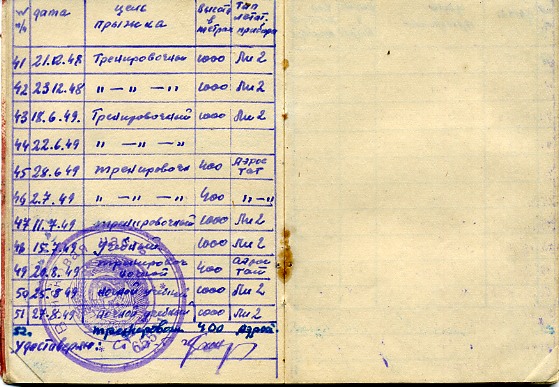 № п/п дата цель прыжка высота в метрах тип летат. прибора
41 21.12.48 Тренировочный 1000 Ли 2
42 23.12.48 " — " — " 1000 Ли 2
43 18.6.49. Тренировочный 1000 Ли 2
44 22.6.49 " — " — " 1000 Ли 2
45 28.6.49 тренировочн 400 Аэростат
46 2.7.49 " — " — " 400 " — "
47 11.7.49 тренировочный 1000 Ли 2
48 15.7.49 учебный 1000 Ли 2
49 20.8.49 тренировоч ночной 400 аэростат
50 25.8.49 ночной учебн 1000 Ли 2
51 27.8.49 ночной учебный 1000 Ли 2
52. тренировочн 400 Аэрост
Удостоверяю: